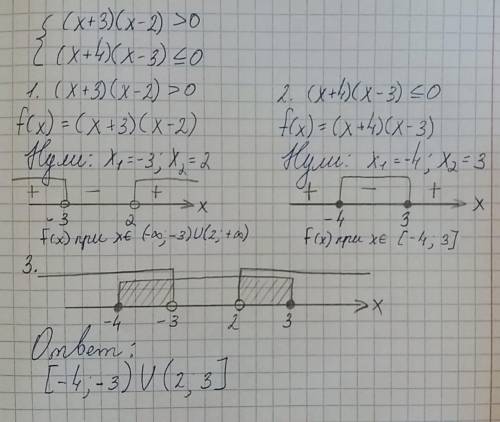 { (x+3)(x-2) >0
{ (x+4)(x-3) ≤0
1. (x+3)(x-2) >0
f(x) = (x+3)(x-2)
Нули: x₁=-3; x₂=2
+ − +
-3 2 x
f(x) при x∈ (-∞; -3)∪(2; +∞)
2. (x+4)(x-3) ≤0
f(x) = (x+4)(x-3)
Нули: x₁=-4; x₂=3
+ − +
-4 3 x
f(x) при x∈ [-4; 3]
3.
-4 -3 2 3 x
Ответ:
[-4; -3) ∪ (2; 3]